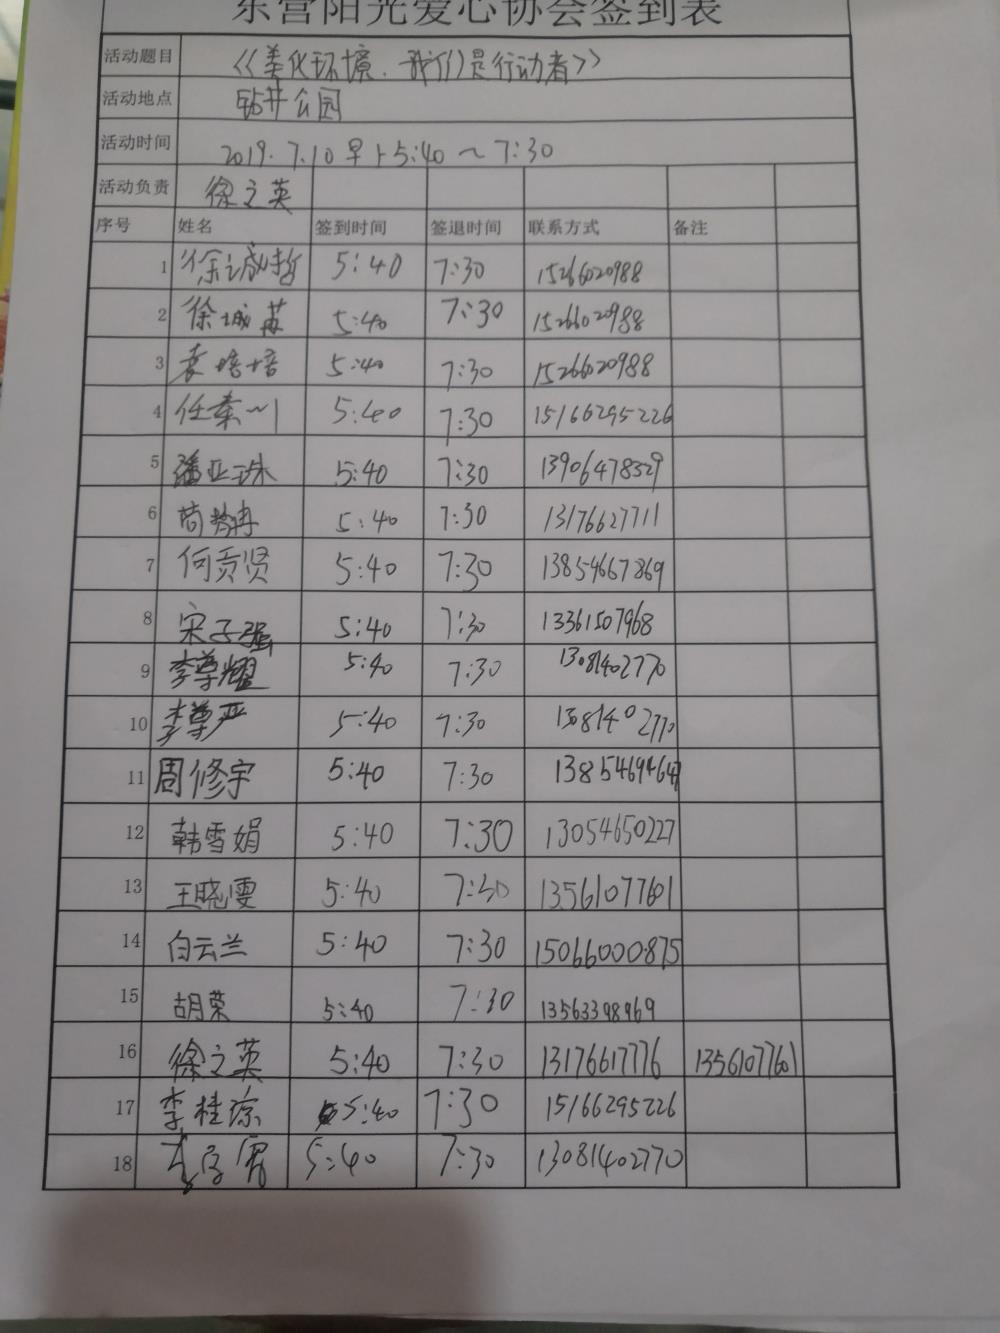 东营阳光爱心协会签到表
活动题目 《美化环境、我们是行动者》
活动地点 钻井公园
活动时间 2019.7.10早上5:40～7:30
活动负责 徐之英
序号 姓名 签到时间 签退时间 联系方式 备注
1 徐诚哲 5:40 7:30 15266020988
2 徐城 5:40 7:30 15266020988
3 袁培培 5:40 7:30 15266020988
4 任秦川 5:40 7:30 15166295226
5 潘亚珠 5:40 7:30 13906478329
6 5:40 7:30 13176627711
7 何贡贤 5:40 7:30 13854667869
8 宋子强 5:40 7:30 13361507968
9 李尊耀 5:40 7:30 13081402770
10 李尊严 5:40 7:30 13081402770
11 周修宇 5:40 7:30
12 韩雪娟 5:40 7:30 13054650227
13 王晓雯 5:40 7:30 13561077601
14 白云兰 5:40 7:30 15066000875
15 胡荣 5:40 7:30 13563398969
16 徐之英 5:40 7:30 13176617776 13561077601
17 李桂琼 5:40 7:30 15166295226
18 5:40 7:30 13081402770